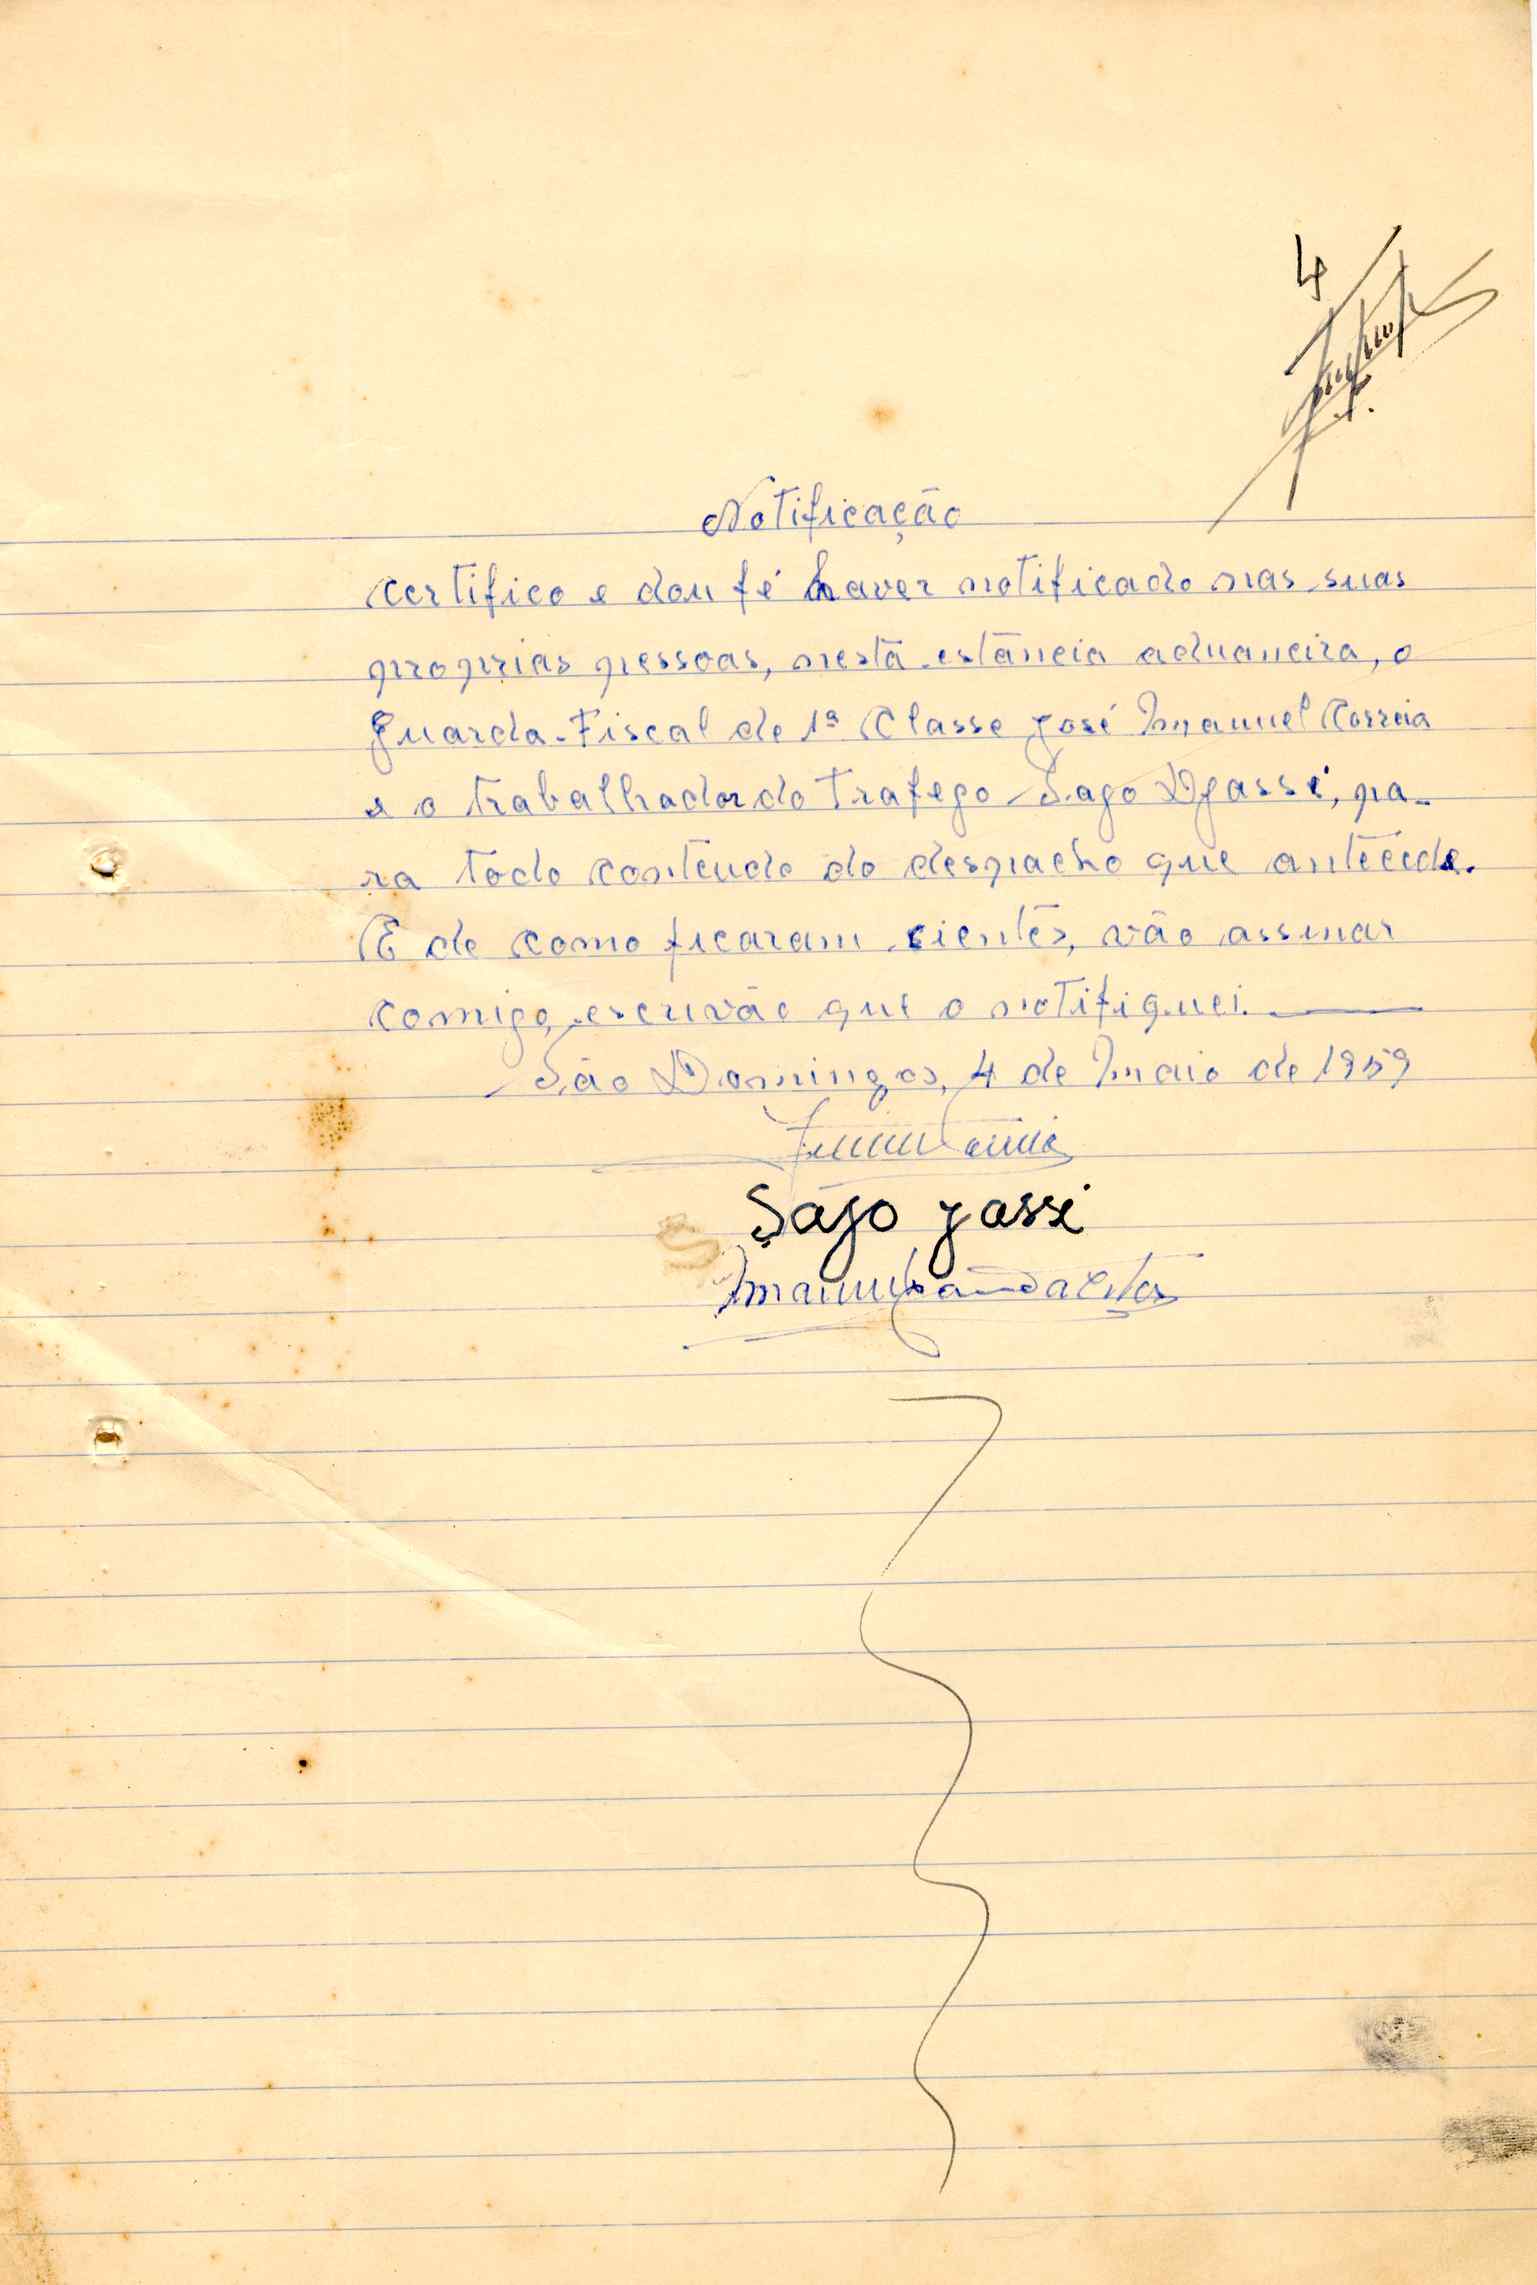 4
Notificação
Certifico e dou fé haver notificado nas suas
proprias pessoas, nesta estância aduaneira, o
Guarda-Fiscal de 1ª Classe José Manuel Correia
e o trabalhador do Trafego Sago Djassi, pa-
ra todo conteudo do despacho que antecede.
E de como ficaram cientes, vão assinar
comigo, escrivão que o notifiquei.
São Domingos, 4 de Maio de 1959
Sago jassi